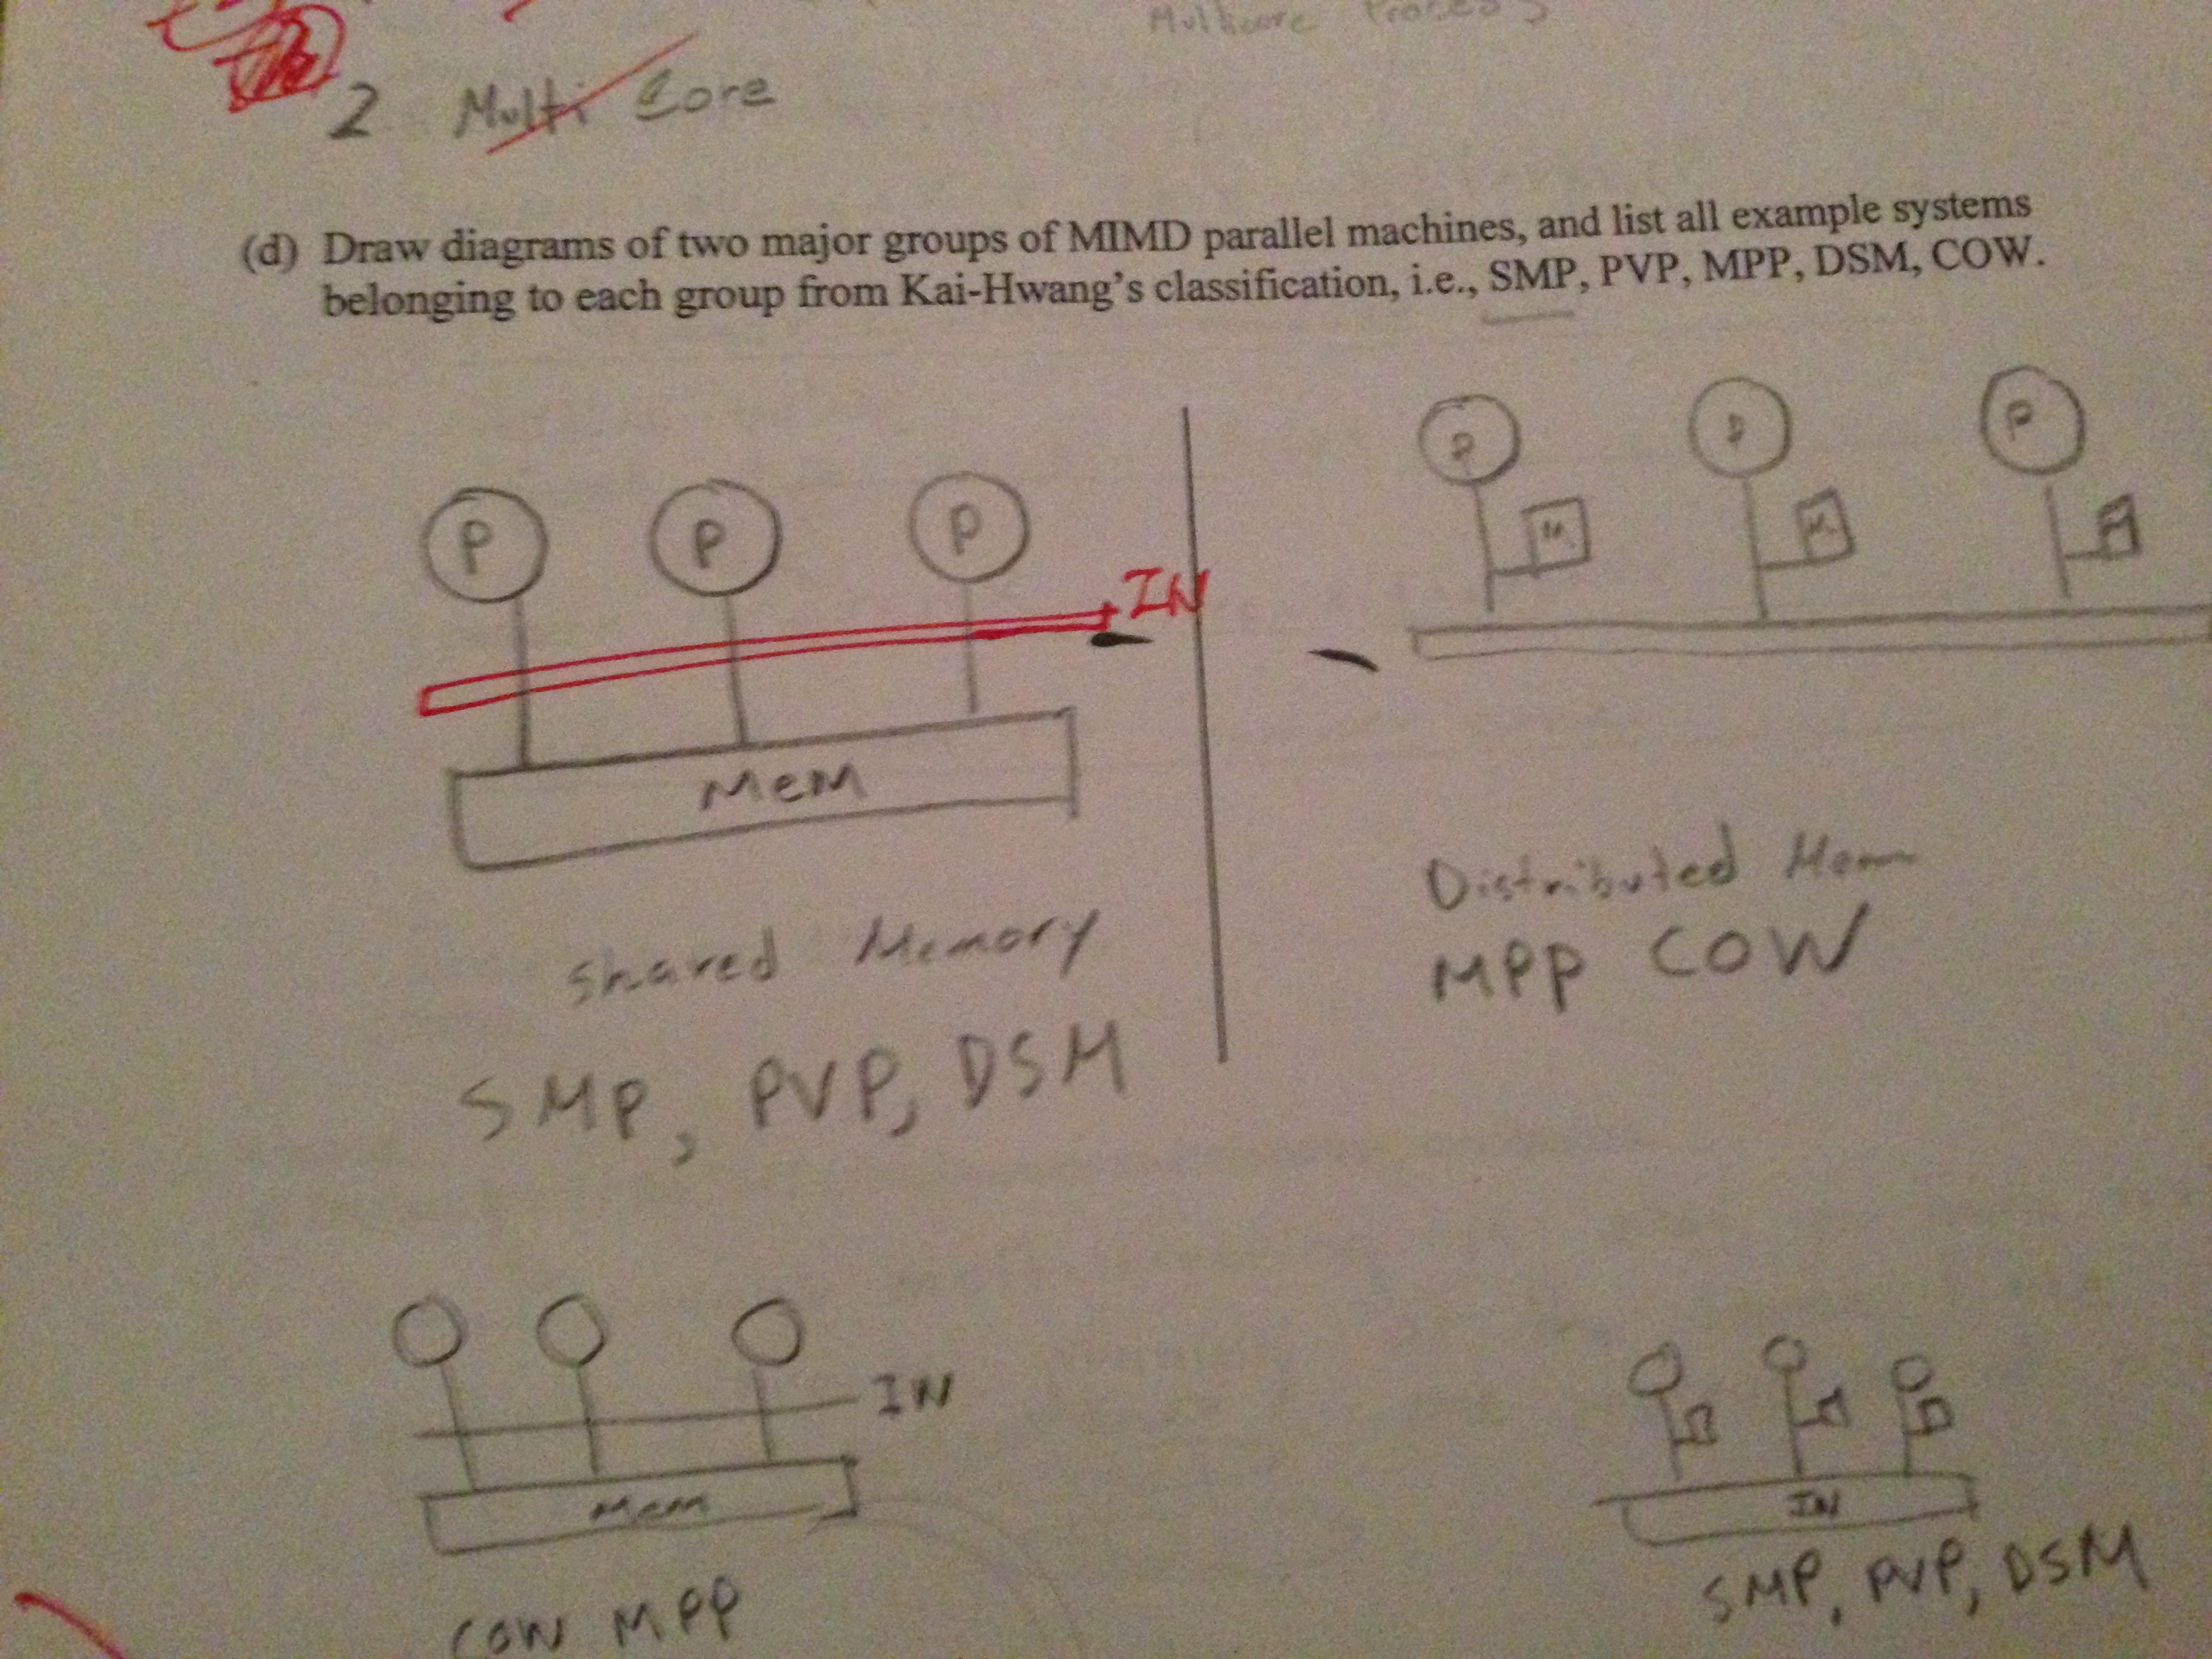 Multicore Process
2 Multi Core
(d) Draw diagrams of two major groups of MIMD parallel machines, and list all example systems
belonging to each group from Kai-Hwang's classification, i.e., SMP, PVP, MPP, DSM, COW.
P P P
IN
Mem
Shared Memory
SMP, PVP, DSM
P P P
M M M
Distributed Mem
MPP COW
IN
Mem
COW MPP
IN
SMP, PVP, DSM